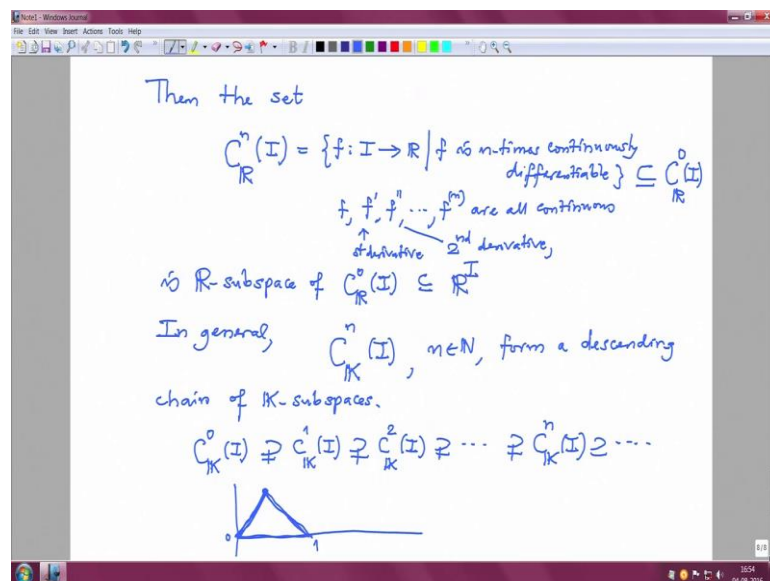 Note1 - Windows Journal
File Edit View Insert Actions Tools Help
Then the set
C^n_ℝ(I) = {f : I → ℝ | f is n-times continuously
differentiable} ⊆ C^0_ℝ(I)
f, f', f'', ..., f^(n) are all continuous
↑
st derivative 2nd derivative,
is ℝ-subspace of C^0_ℝ(I) ⊆ ℝ^I
In general, C^n_𝕂(I), n∈ℕ, form a descending
chain of 𝕂-subspaces.
C^0_𝕂(I) ⊋ C^1_𝕂(I) ⊋ C^2_𝕂(I) ⊋ ... ⊋ C^n_𝕂(I) ⊇ ....
0 1
8/8
16:54